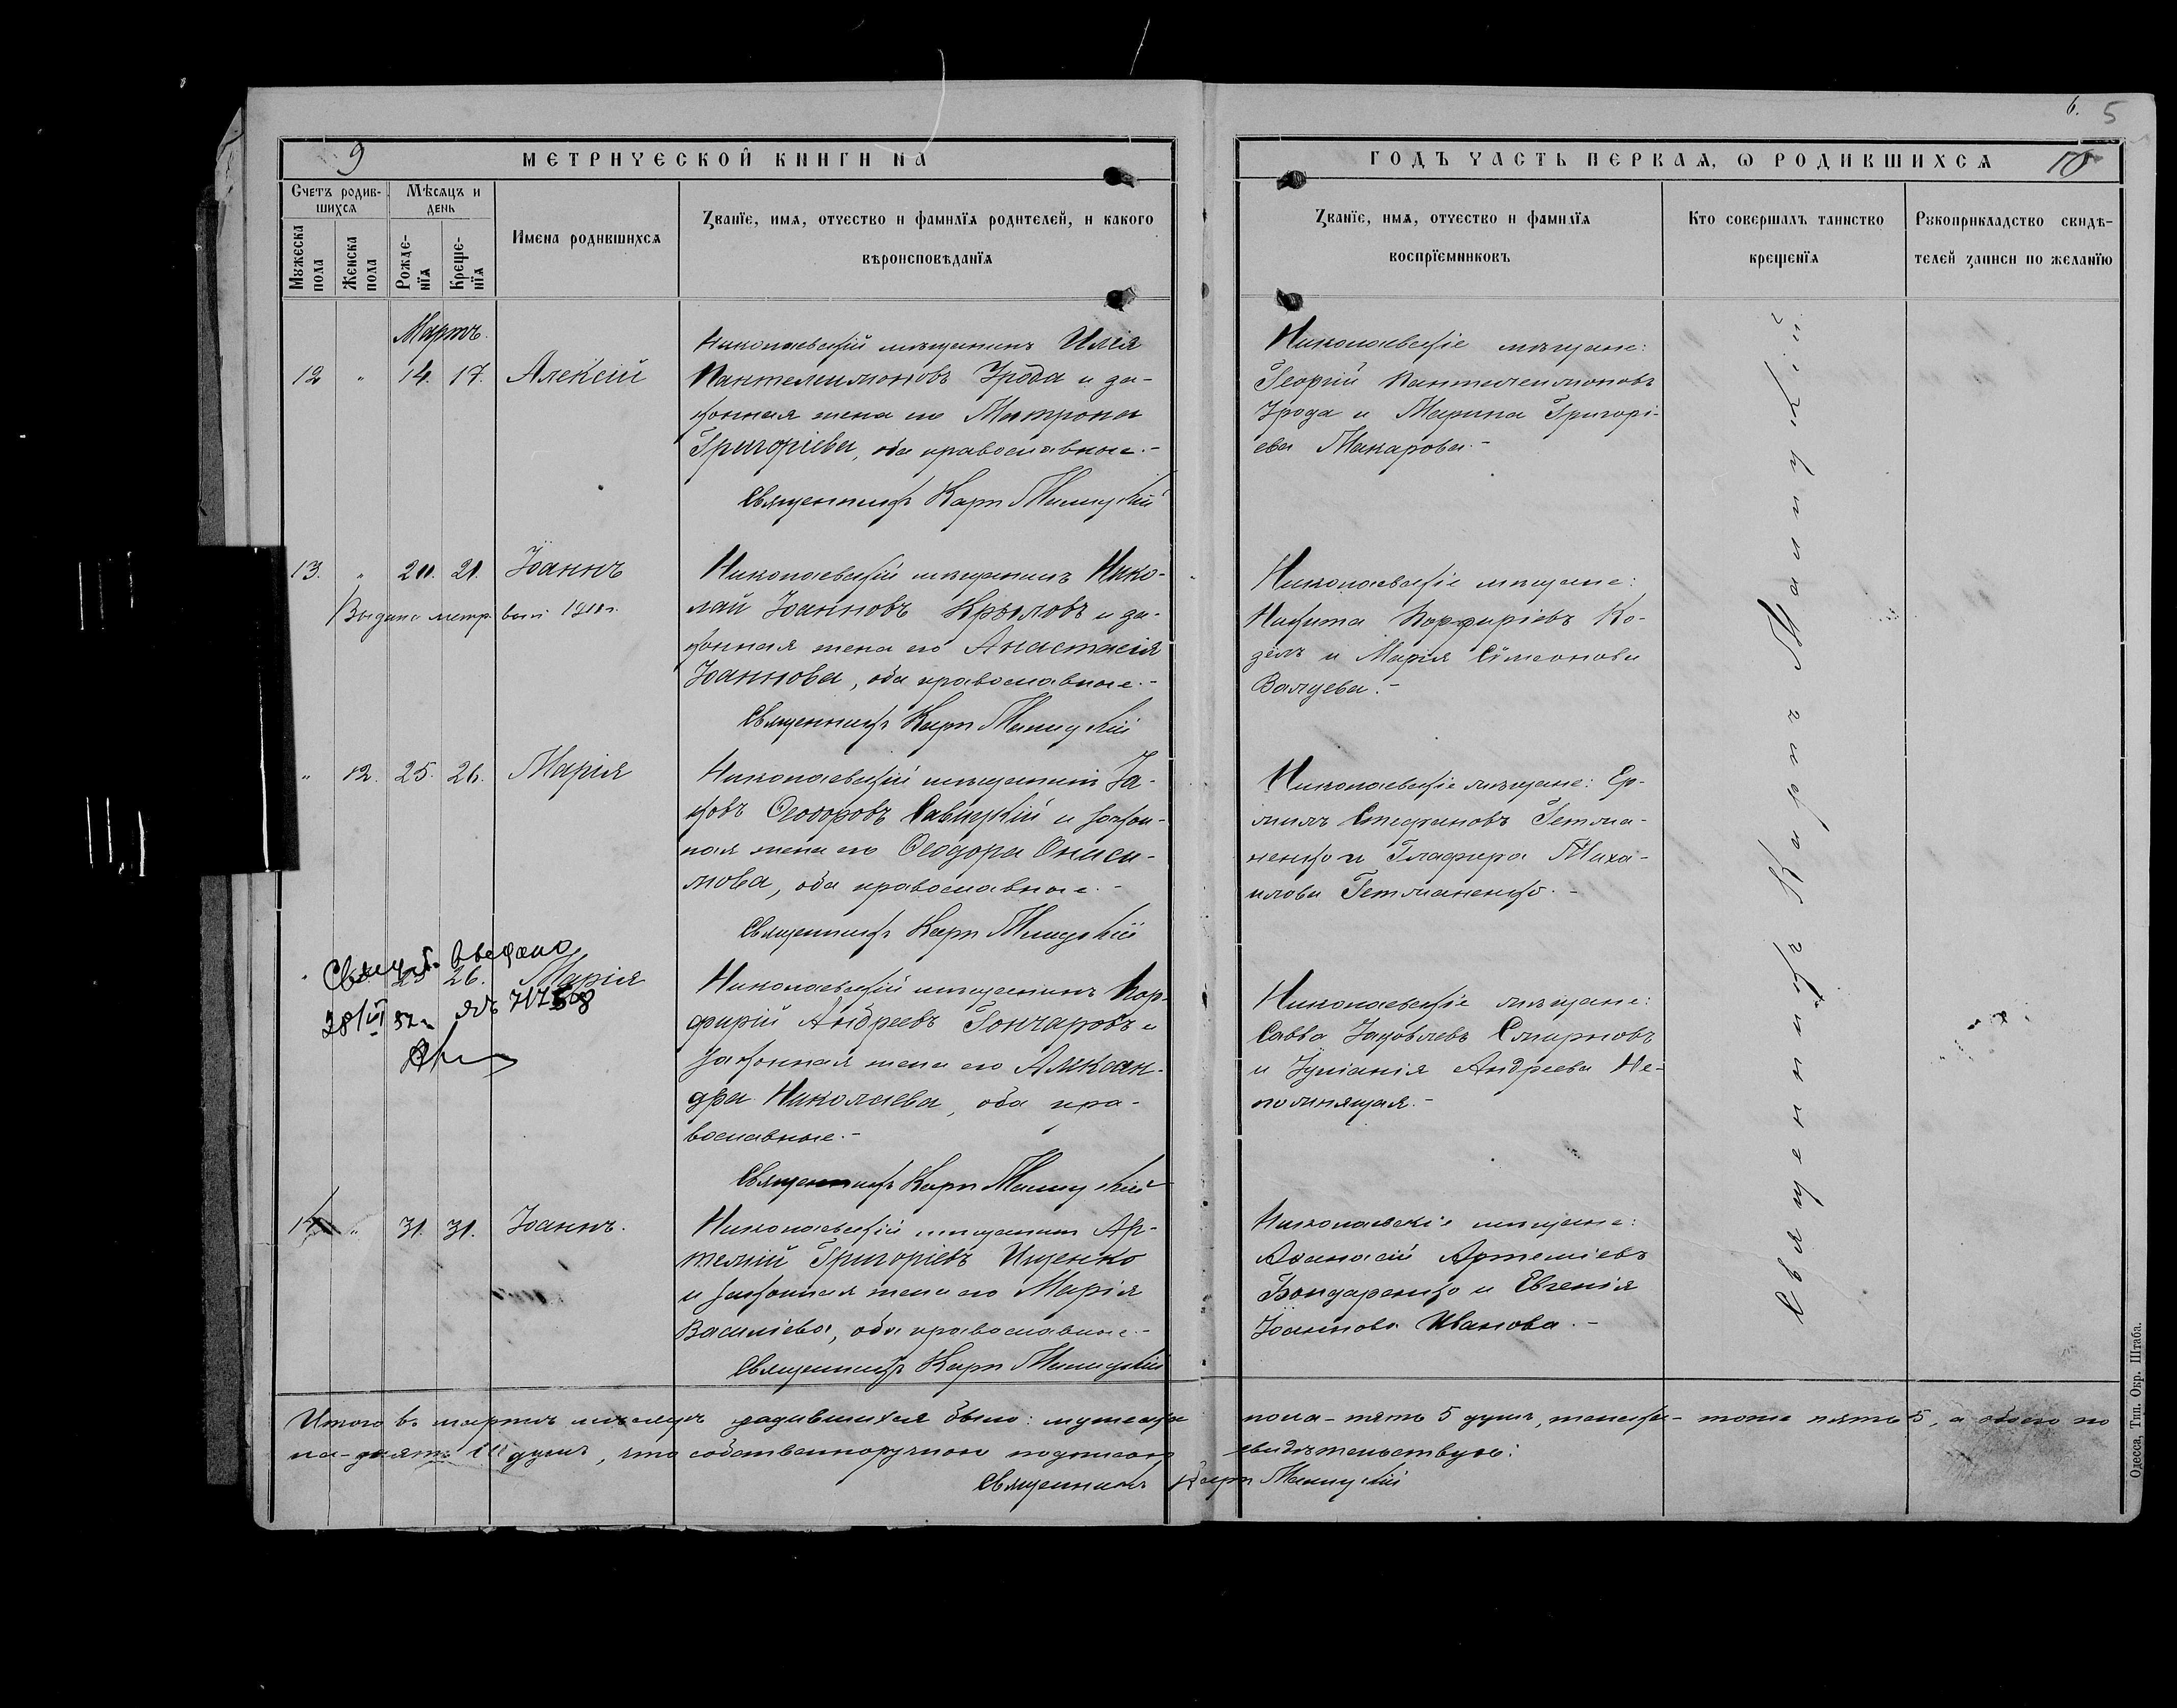 6. 5
9
МЕТРИЧЕСКОЙ КНИГИ НА
ГОДЪ ЧАСТЬ ПЕРВАЯ, Ѡ РОДИВШИХСЯ
10
Счетъ родив-
шихся
Мѣсяцъ и
день
Мужеска
пола
Женска
пола
Рожде-
нїя
Креще-
нїя
Имена родившихся
Званїе, имя, отчество и фамилїя родителей, и какого
вѣроисповѣданїя
Званїе, имя, отчество и фамилїя
воспрїемниковъ
Кто совершалъ таинство
крещенїя
Рукоприкладство свидѣ-
телей записи по желанїю
Мартъ.
12 " 14. 17. Алексій
Николаевскій мѣщанинъ Илія
Пантелеимоновъ Урода и за-
конная жена его Матрона
Григоріева, оба православные.-
Священникъ Карп
Николаевскіе мѣщане:
Георгій Пантелеимоновъ
Урода и Марина Григорі-
ева Макарова.-
13. " 20. 21. Іоаннъ
Выдана метр. вып.
Николаевскій мѣщанинъ Нико-
лай Іоанновъ Крыловъ и за-
конная жена его Анастасія
Іоаннова, оба православные.-
Священникъ Карп
Николаевскіе мѣщане:
Никита Порфиріевъ Ко-
зелъ и Марія Сѵмеонова
Валуева.-
" 12. 25. 26. Марія
Николаевскій мѣщанинъ Іа-
ковъ Ѳеодоровъ Савицкій и закон-
ная жена его Ѳеодора Ониси-
мова, оба православные.-
Священникъ Карп
Николаевскіе мѣщане: Ер-
милъ Стефановъ Гетма-
ненко и Глафира Миха-
илова Гетманенко.-
" 25 26. Марія
28/VI
Николаевскій мѣщанинъ Пор-
фирій Андреевъ Гончаровъ и
законная жена его Алексан-
дра Николаева, оба пра-
вославные.-
Священникъ Карп
Николаевскіе мѣщане:
Савва Іаковлевъ Смирновъ
и Іуліанія Андреева Не-
помнящая.-
14 " 31. 31. Іоаннъ.
Николаевскій мѣщанинъ Ар-
темій Григоріевъ Ищенко
и законная жена его Марія
Василіева, оба православные.-
Священникъ Карп
Николаевскіе мѣщане:
Аѳанасій Артеміевъ
Бондаренко и Евгенія
Іоаннова Иванова.-
Священникъ Карпъ
Итого въ мартѣ мѣсяцѣ родившихся было: мужеска пола - пять 5 душъ, женска - тоже пять 5, а обоего по-
ла - десять 10 душъ, что собственноручною подписью свидѣтельствую:
Священникъ Карп
Одесса, Тип. Окр. Штаба.